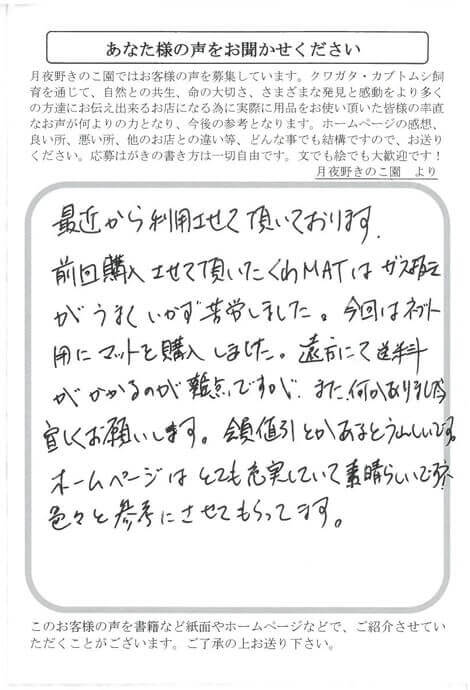 あなた様の声をお聞かせください
月夜野きのこ園ではお客様の声を募集しています。クワガタ・カブトムシ飼
育を通じて、自然との共生、命の大切さ、さまざまな発見と感動をより多く
の方達にお伝え出来るお店になる為に実際に用品をお使い頂いた皆様の率直
なお声が何よりの力となり、今後の参考となります。ホームページの感想、
良い所、悪い所、他のお店との違い等、どんな事でも結構ですので、お送り
ください。応募はがきの書き方は一切自由です。文でも絵でも大歓迎です！
月夜野きのこ園　より
最近から利用させて頂いております。
前回購入させて頂いたくわMATはガス抜き
がうまくいかず苦労しました。今回は
用にマットを購入しました。遠方にて送料
がかかるのが難点ですが、また何かありましたら
宜しくお願いします。会員値引とかあるとうれしいです。
ホームページはとても充実していて素晴らしいです
色々と参考にさせてもらってます。
このお客様の声を書籍など紙面やホームページなどで、ご紹介させてい
ただくことがございます。ご了承の上お送り下さい。